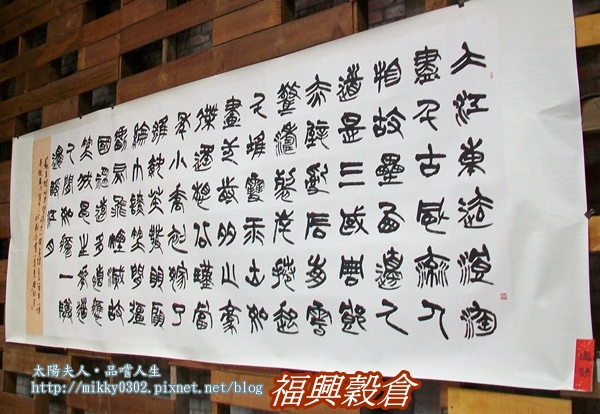 大江東去浪淘
盡千古風流人
物故壘西邊人
道是三國周郎
赤壁亂石雲
驚濤裂岸捲起
千堆雪江山如
畫一時多少豪
傑遙想公瑾當
年小喬初嫁了
雄姿英發羽扇
綸巾談笑間檣
櫓灰飛煙滅故
國神遊多情應
笑我早生華髮
人間如夢一
還酹江月
太陽夫人‧品嚐人生
http://mikky0302.pixnet.net/blog
福興穀倉